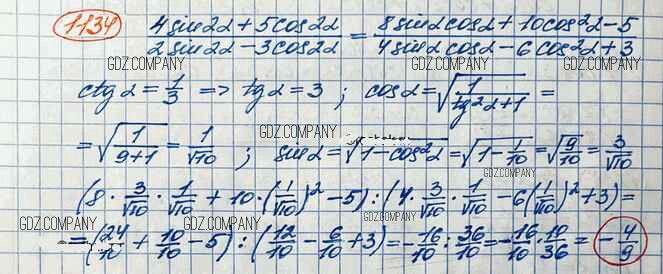 1134 (4sin2α + 5cos2α)/(2sin2α - 3cos2α) = (8sinαcosα + 10cos²α - 5)/(4sinαcosα - 6cos²α + 3)
GDZ.COMPANY GDZ.COMPANY
ctgα = 1/3 => tgα = 3 ; cosα = √(1/(tg²α+1)) =
= √(1/(9+1)) = 1/√10 ; sinα = √(1-cos²α) = √(1 - 1/10) = √(9/10) = 3/√10
GDZ.COMPANY
GDZ.COMPANY
(8 · 3/√10 · 1/√10 + 10 · (1/√10)² - 5) : (4 · 3/√10 · 1/√10 - 6(1/√10)² + 3) =
GDZ.COMPANY GDZ.COMPANY
= (24/10 + 10/10 - 5) : (12/10 - 6/10 + 3) = -16/10 : 36/10 = -16/10 · 10/36 = -4/9